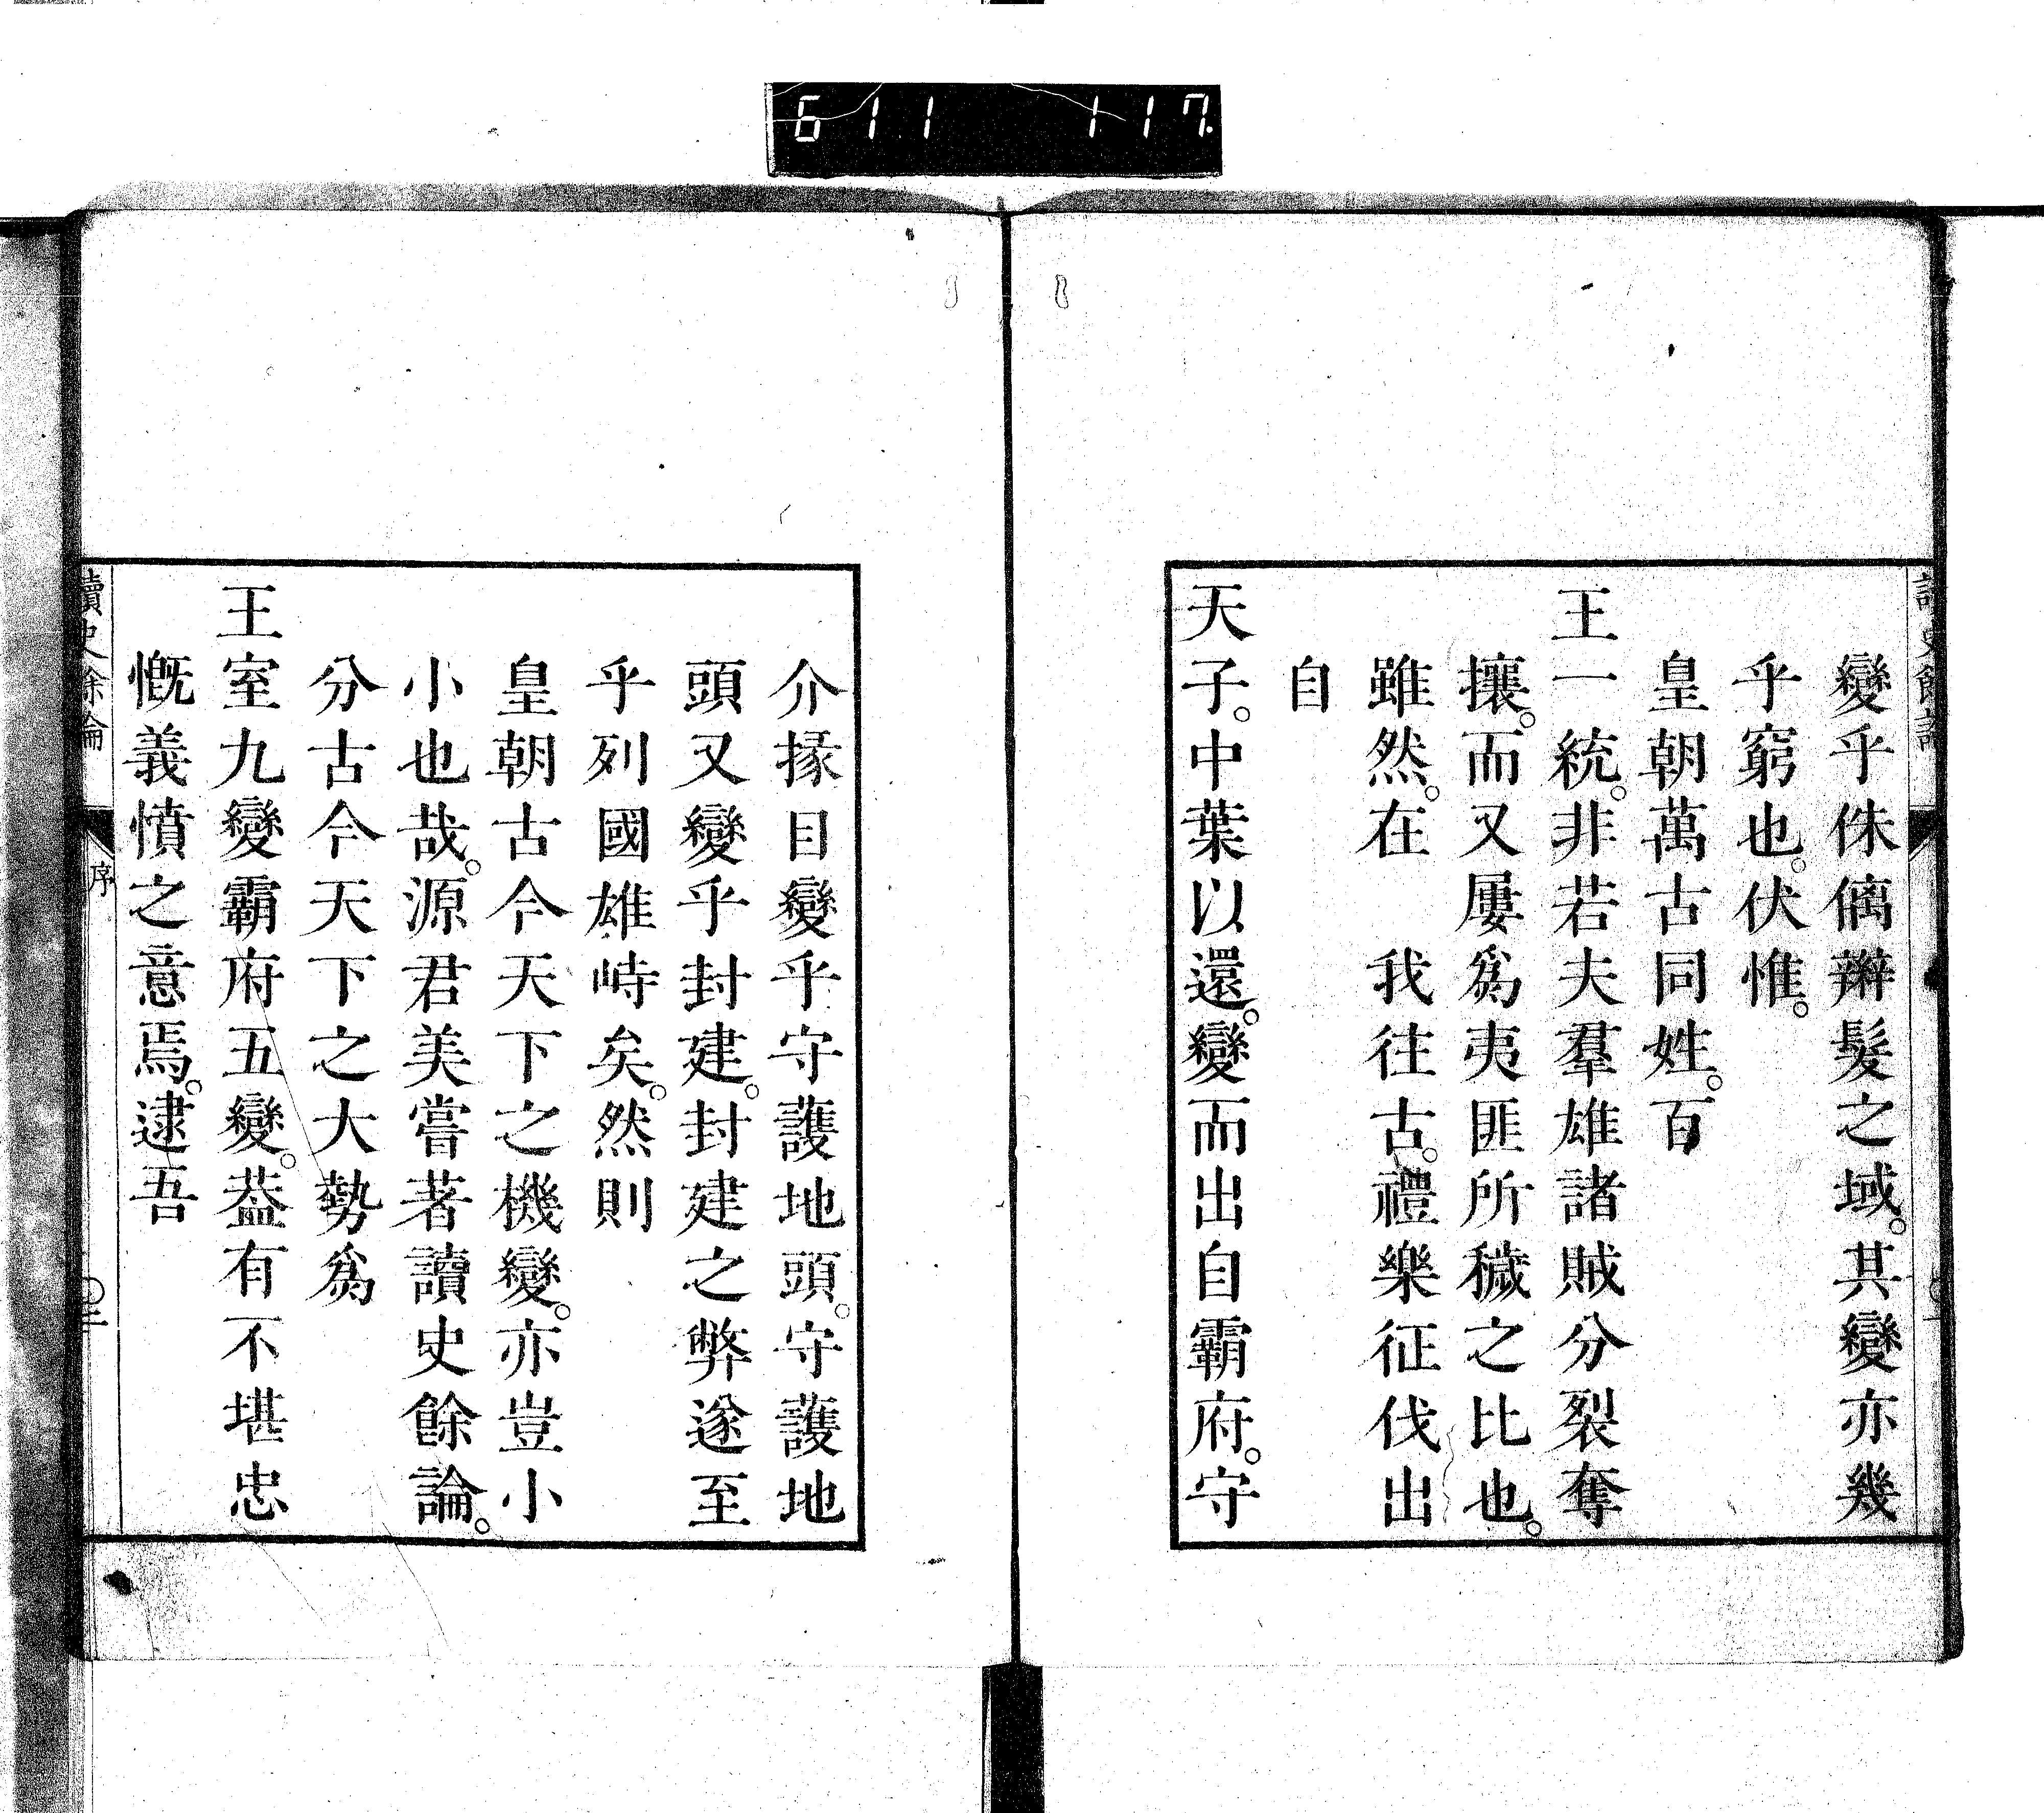 6 1 1 1 1 7.
讀史餘論
變乎侏𠌯辮髮之域。其變亦幾
乎窮也。伏惟。
皇朝萬古同姓。百
王一統。非若夫羣雄諸賊分裂奪
攘。而又屢爲夷匪所穢之比也。
雖然。在 我往古。禮樂征伐出
自
天子。中葉以還。變而出自霸府。守
介掾目變乎守護地頭。守護地
頭又變乎封建。封建之弊遂至
乎列國雄峙矣。然則
皇朝古今天下之機變。亦豈小
小也哉。源君美嘗著讀史餘論。
分古今天下之大勢爲
王室九變霸府五變。葢有不堪忠
慨義憤之意焉。逮吾
讀史餘論
序
二